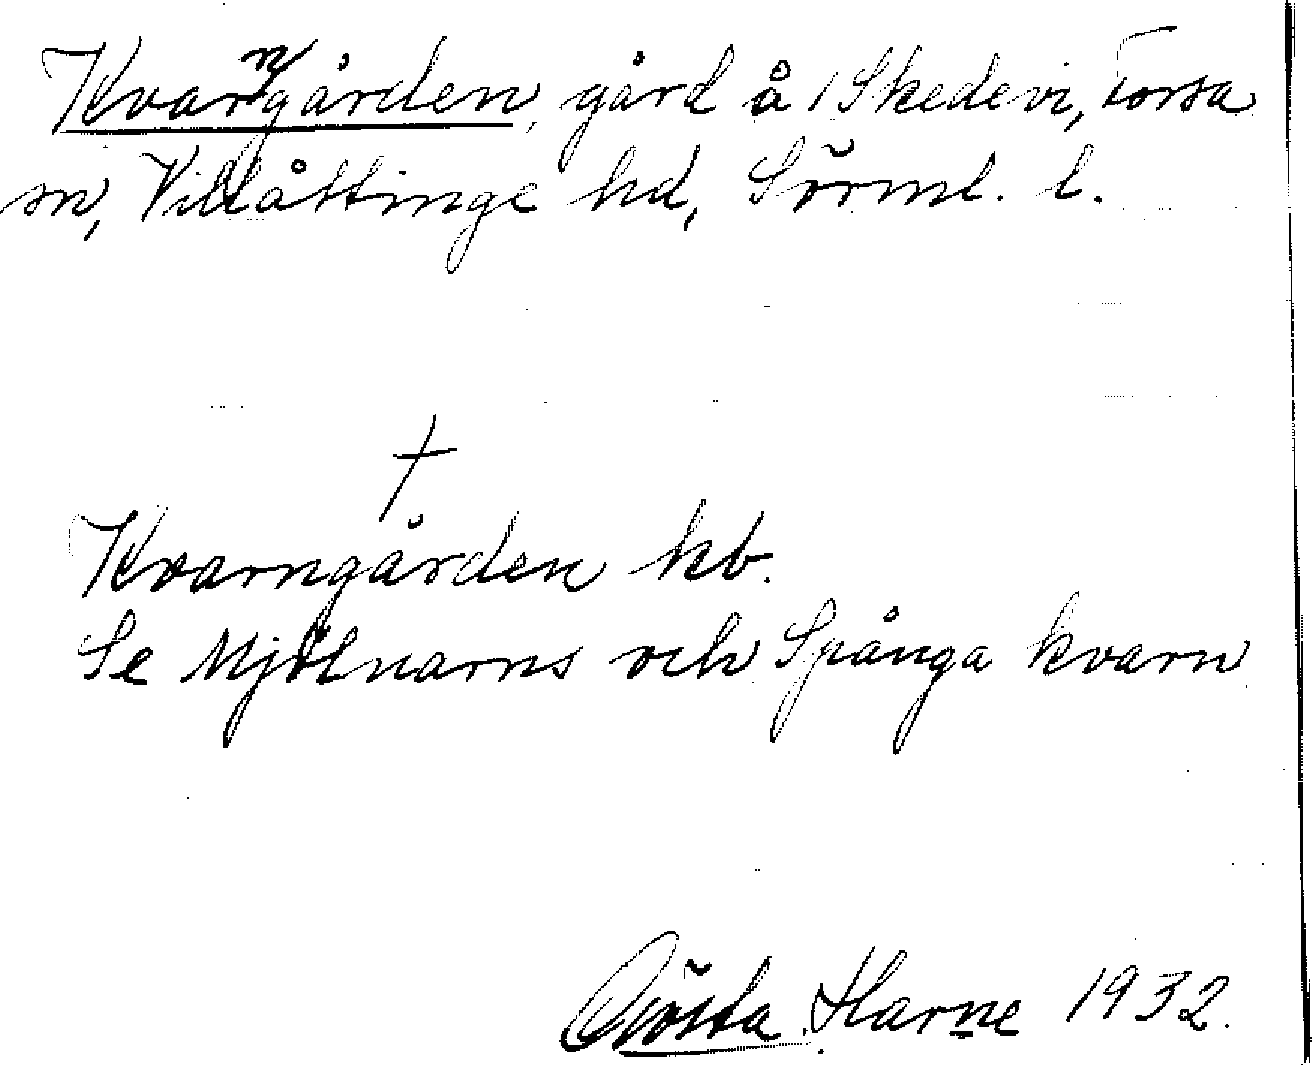 Kvarngården, gård å 1 Skedevi, Torsa
sn, Villåttinge hd, Sörml. l.
†
Kvarngården hb.
Se Mjölnarns och Spånga kvarn
Gösta Harne 1932.